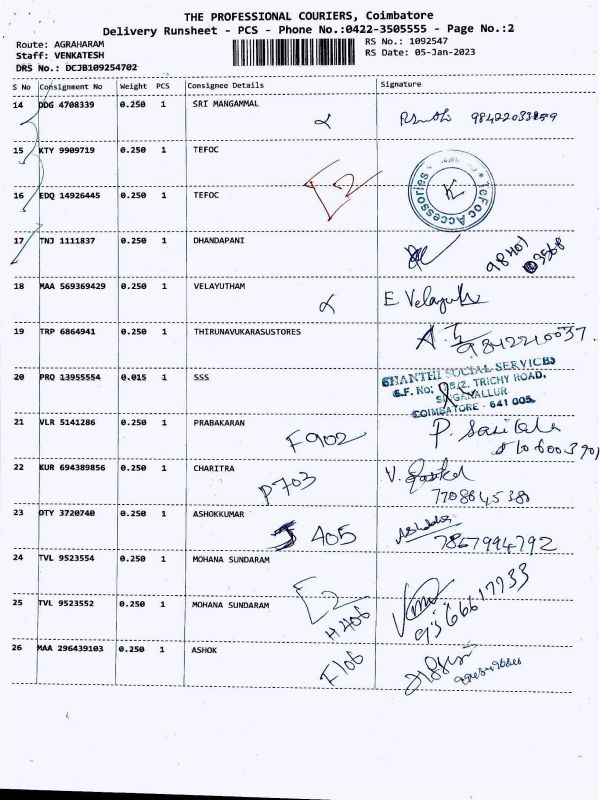 THE PROFESSIONAL COURIERS, Coimbatore
Delivery Runsheet - PCS - Phone No.:0422-3505555 - Page No.:2
Route: AGRAHARAM RS No.: 1092547
Staff: VENKATESH RS Date: 05-Jan-2023
DRS No.: DCJB109254702
S No Consignment No Weight PCS Consignee Details Signature
14 DDG 4708339 0.250 1 SRI MANGAMMAL
15 KTY 9909719 0.250 1 TEFOC
16 EDQ 14926445 0.250 1 TEFOC E2 TeFoc Accessories
17 TNJ 1111837 0.250 1 DHANDAPANI 98401 03568
18 MAA 569369429 0.250 1 VELAYUTHAM E Velayuth
19 TRP 6864941 0.250 1 THIRUNAVUKARASUSTORES 9842210037.
20 PRO 13955554 0.015 1 SSS SHANTHI SOCIAL SERVICES
TRICHY ROAD,
SINGANALLUR
COIMBATORE - 641 005.
21 VLR 5141286 0.250 1 PRABAKARAN F902
22 KUR 694389856 0.250 1 CHARITRA P703 V.
23 DTY 3720740 0.250 1 ASHOKKUMAR J 405 7867994792
24 TVL 9523554 0.250 1 MOHANA SUNDARAM E2
25 TVL 9523552 0.250 1 MOHANA SUNDARAM H406
26 MAA 296439103 0.250 1 ASHOK F106